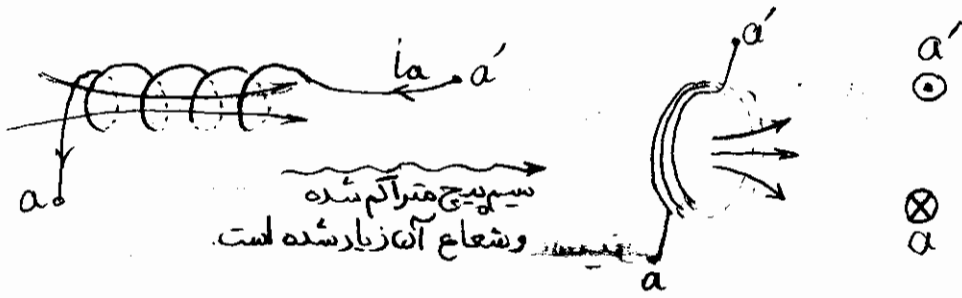 a
i a
a'
سیم پیچ متراکم شده
و شعاع آن زیاد شده است.
a'
a
a'
a